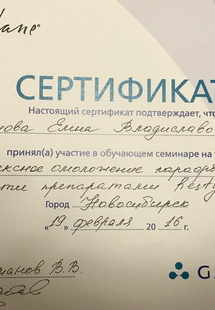 lane®
СЕРТИФИКАТ
Настоящий сертификат подтверждает, что
нова Елена Владиславо
принял(а) участие в обучающем семинаре на
ексное омоложение параорб
препаратами Resty
Город Новосибирск
«19» февраля 2016 г.
манов В.В.
G